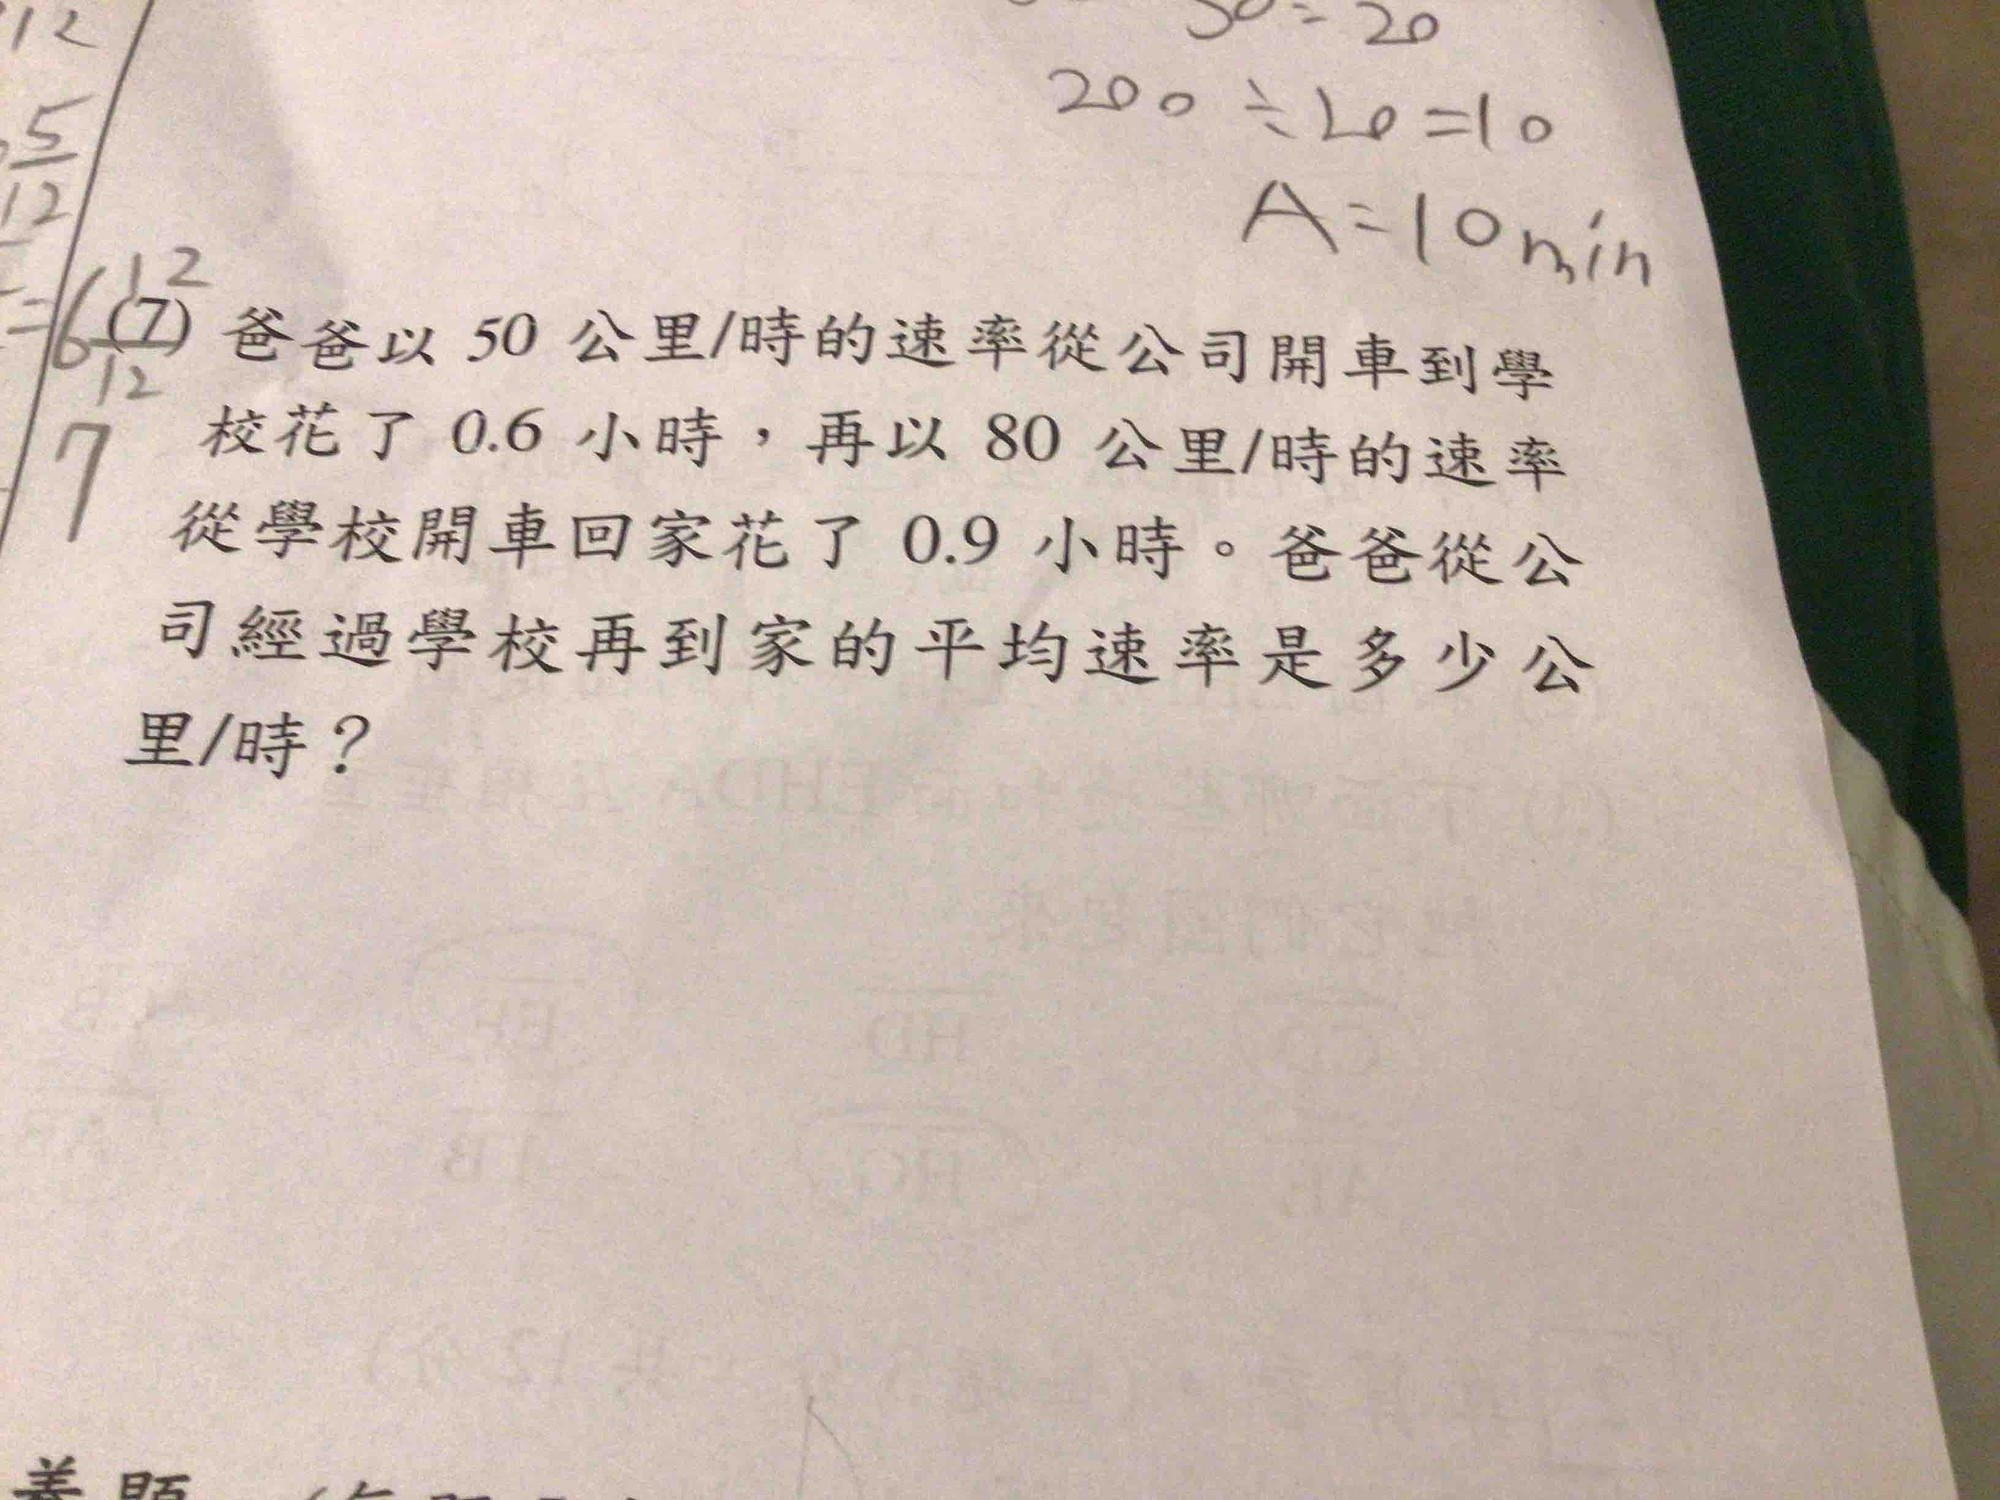 12
5
12
20
200 ÷ 20 = 10
A = 10 min
= 6 12
12
7
(7) 爸爸以 50 公里/時的速率從公司開車到學
校花了 0.6 小時，再以 80 公里/時的速率
從學校開車回家花了 0.9 小時。爸爸從公
司經過學校再到家的平均速率是多少公
里/時？